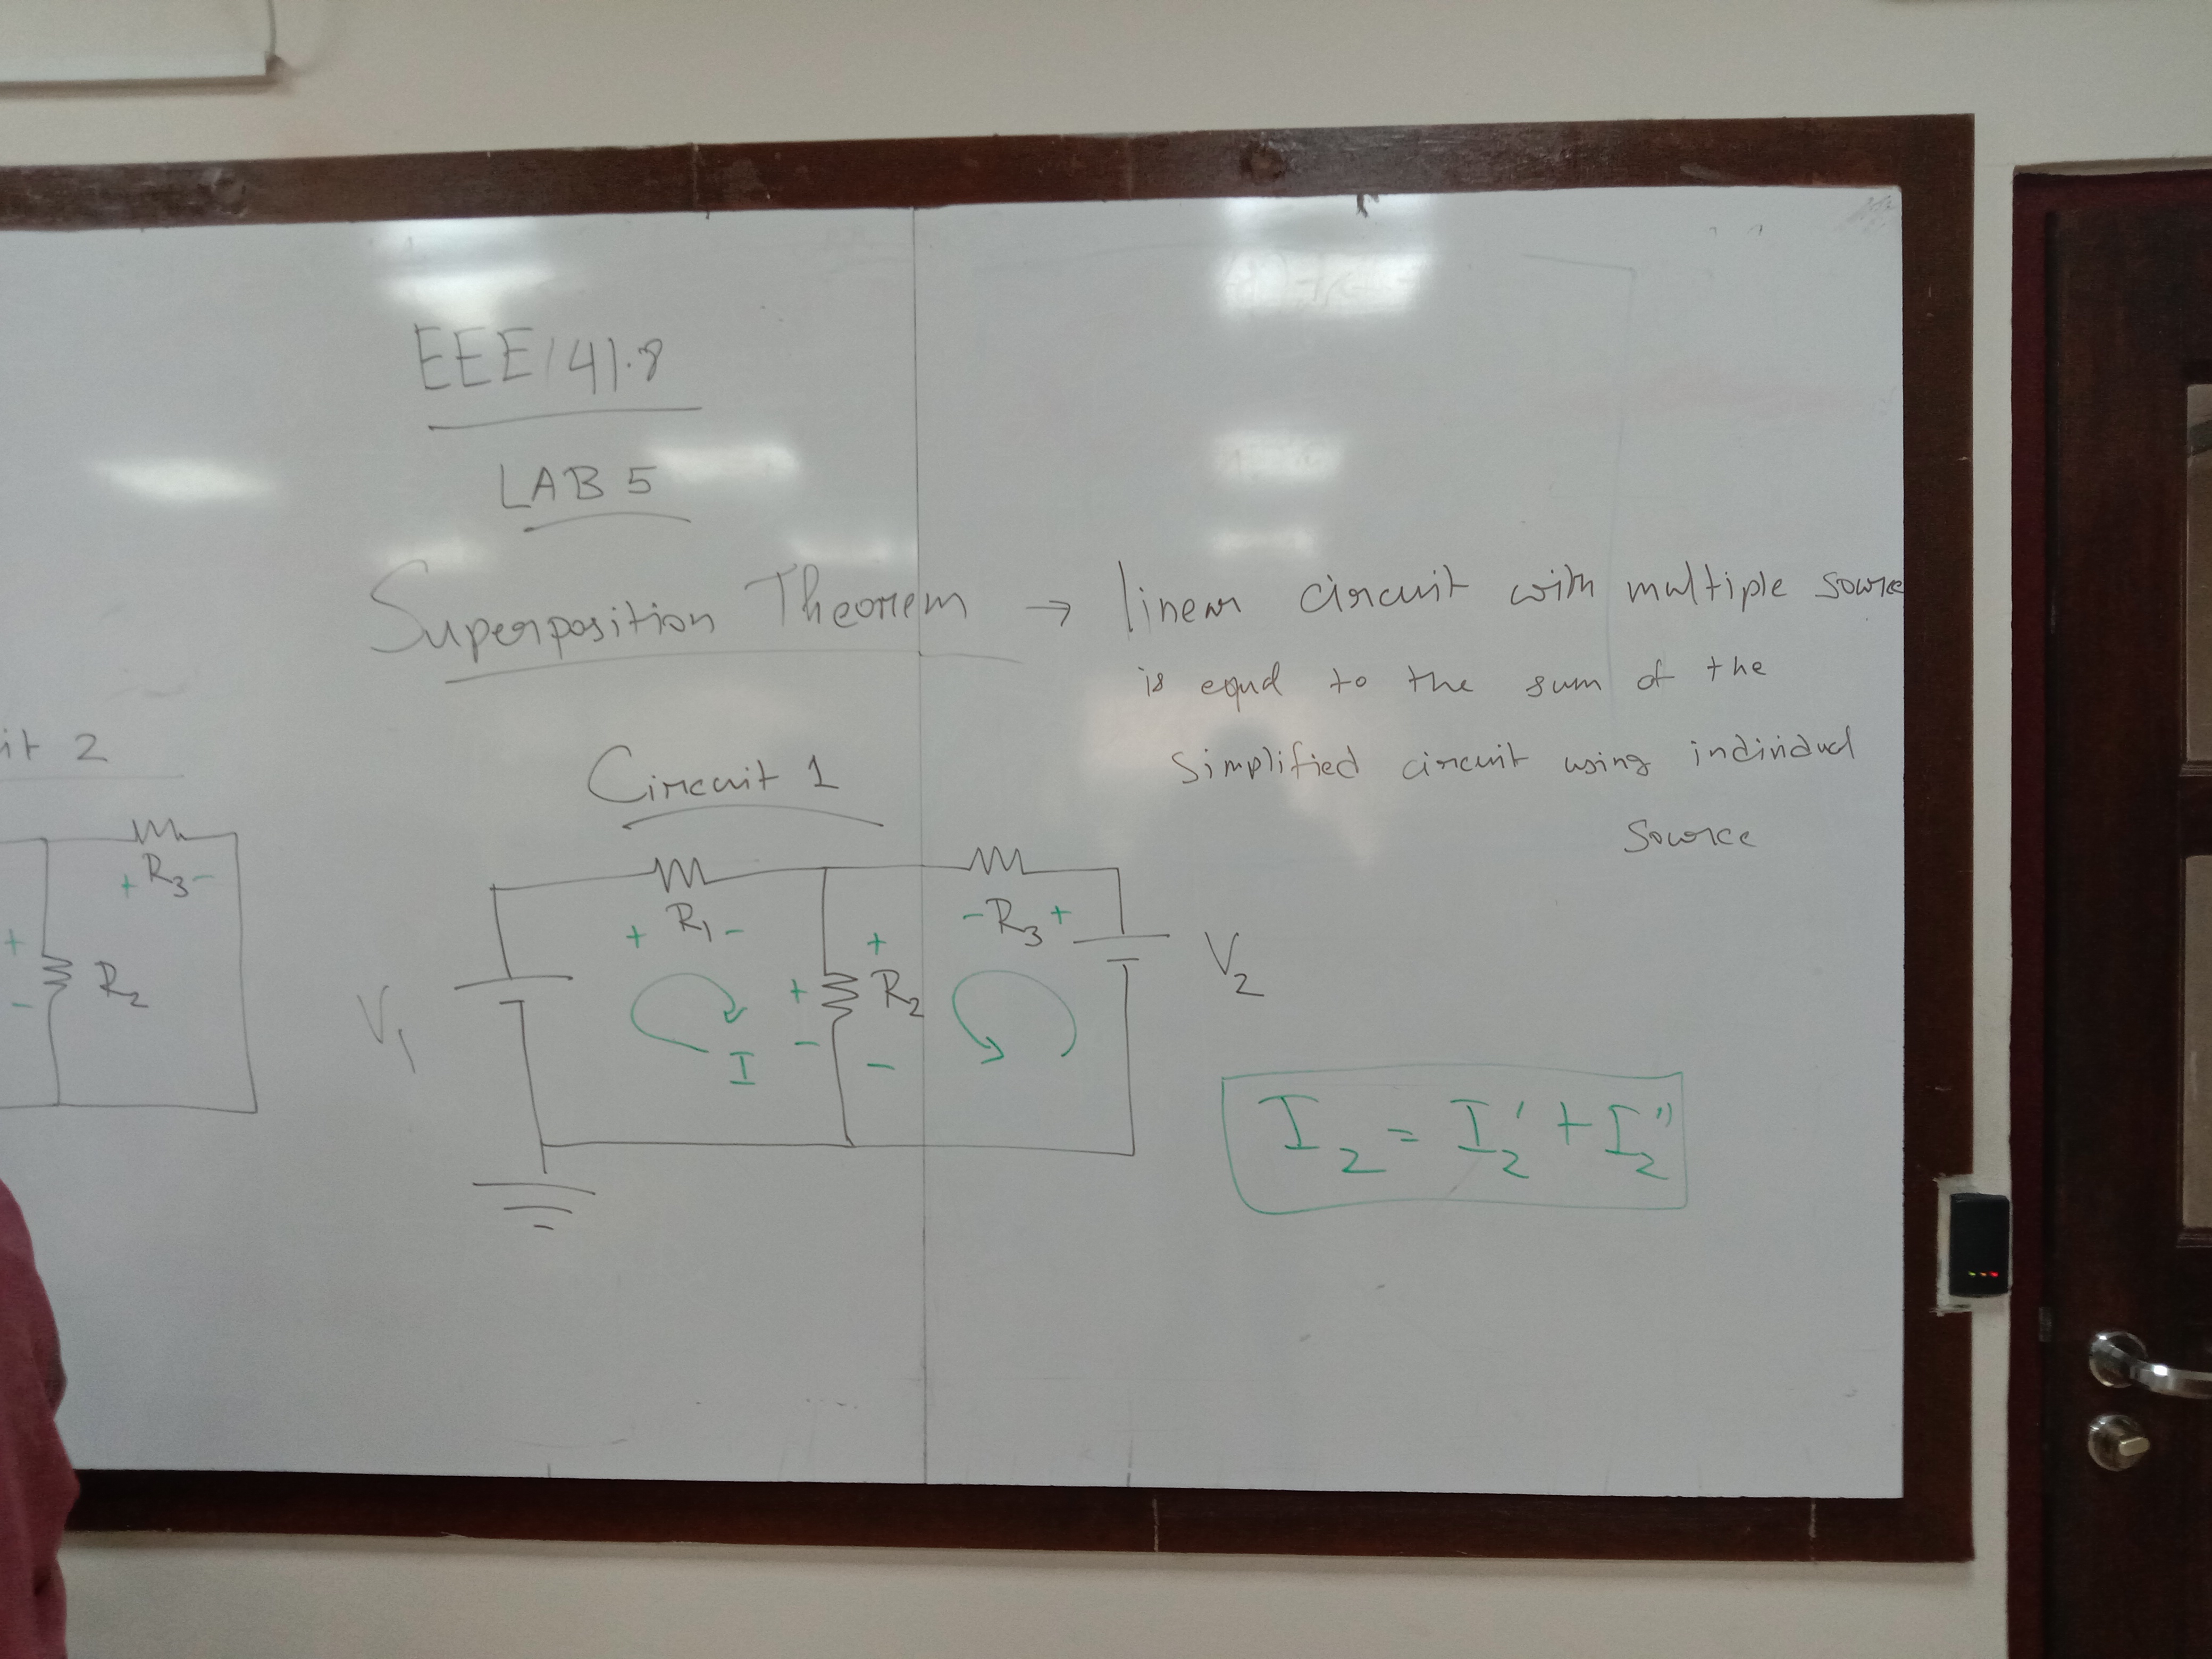 EEE141.8
LAB 5
Superposition Theorem → linear circuit with multiple source
is equal to the sum of the
simplified circuit using individual
source
it 2
+ R3 -
+
-
R2
Circuit 1
+ R1 -
- R3 +
V1
I
+
-
+
R2
-
V2
I2 = I2' + I2''